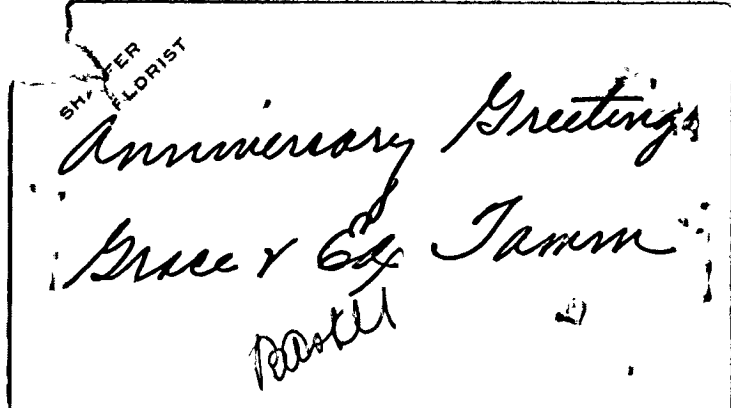 SHAFFER
FLORIST
Anniversary Greetings
Grace & Ed Tamm
Basket